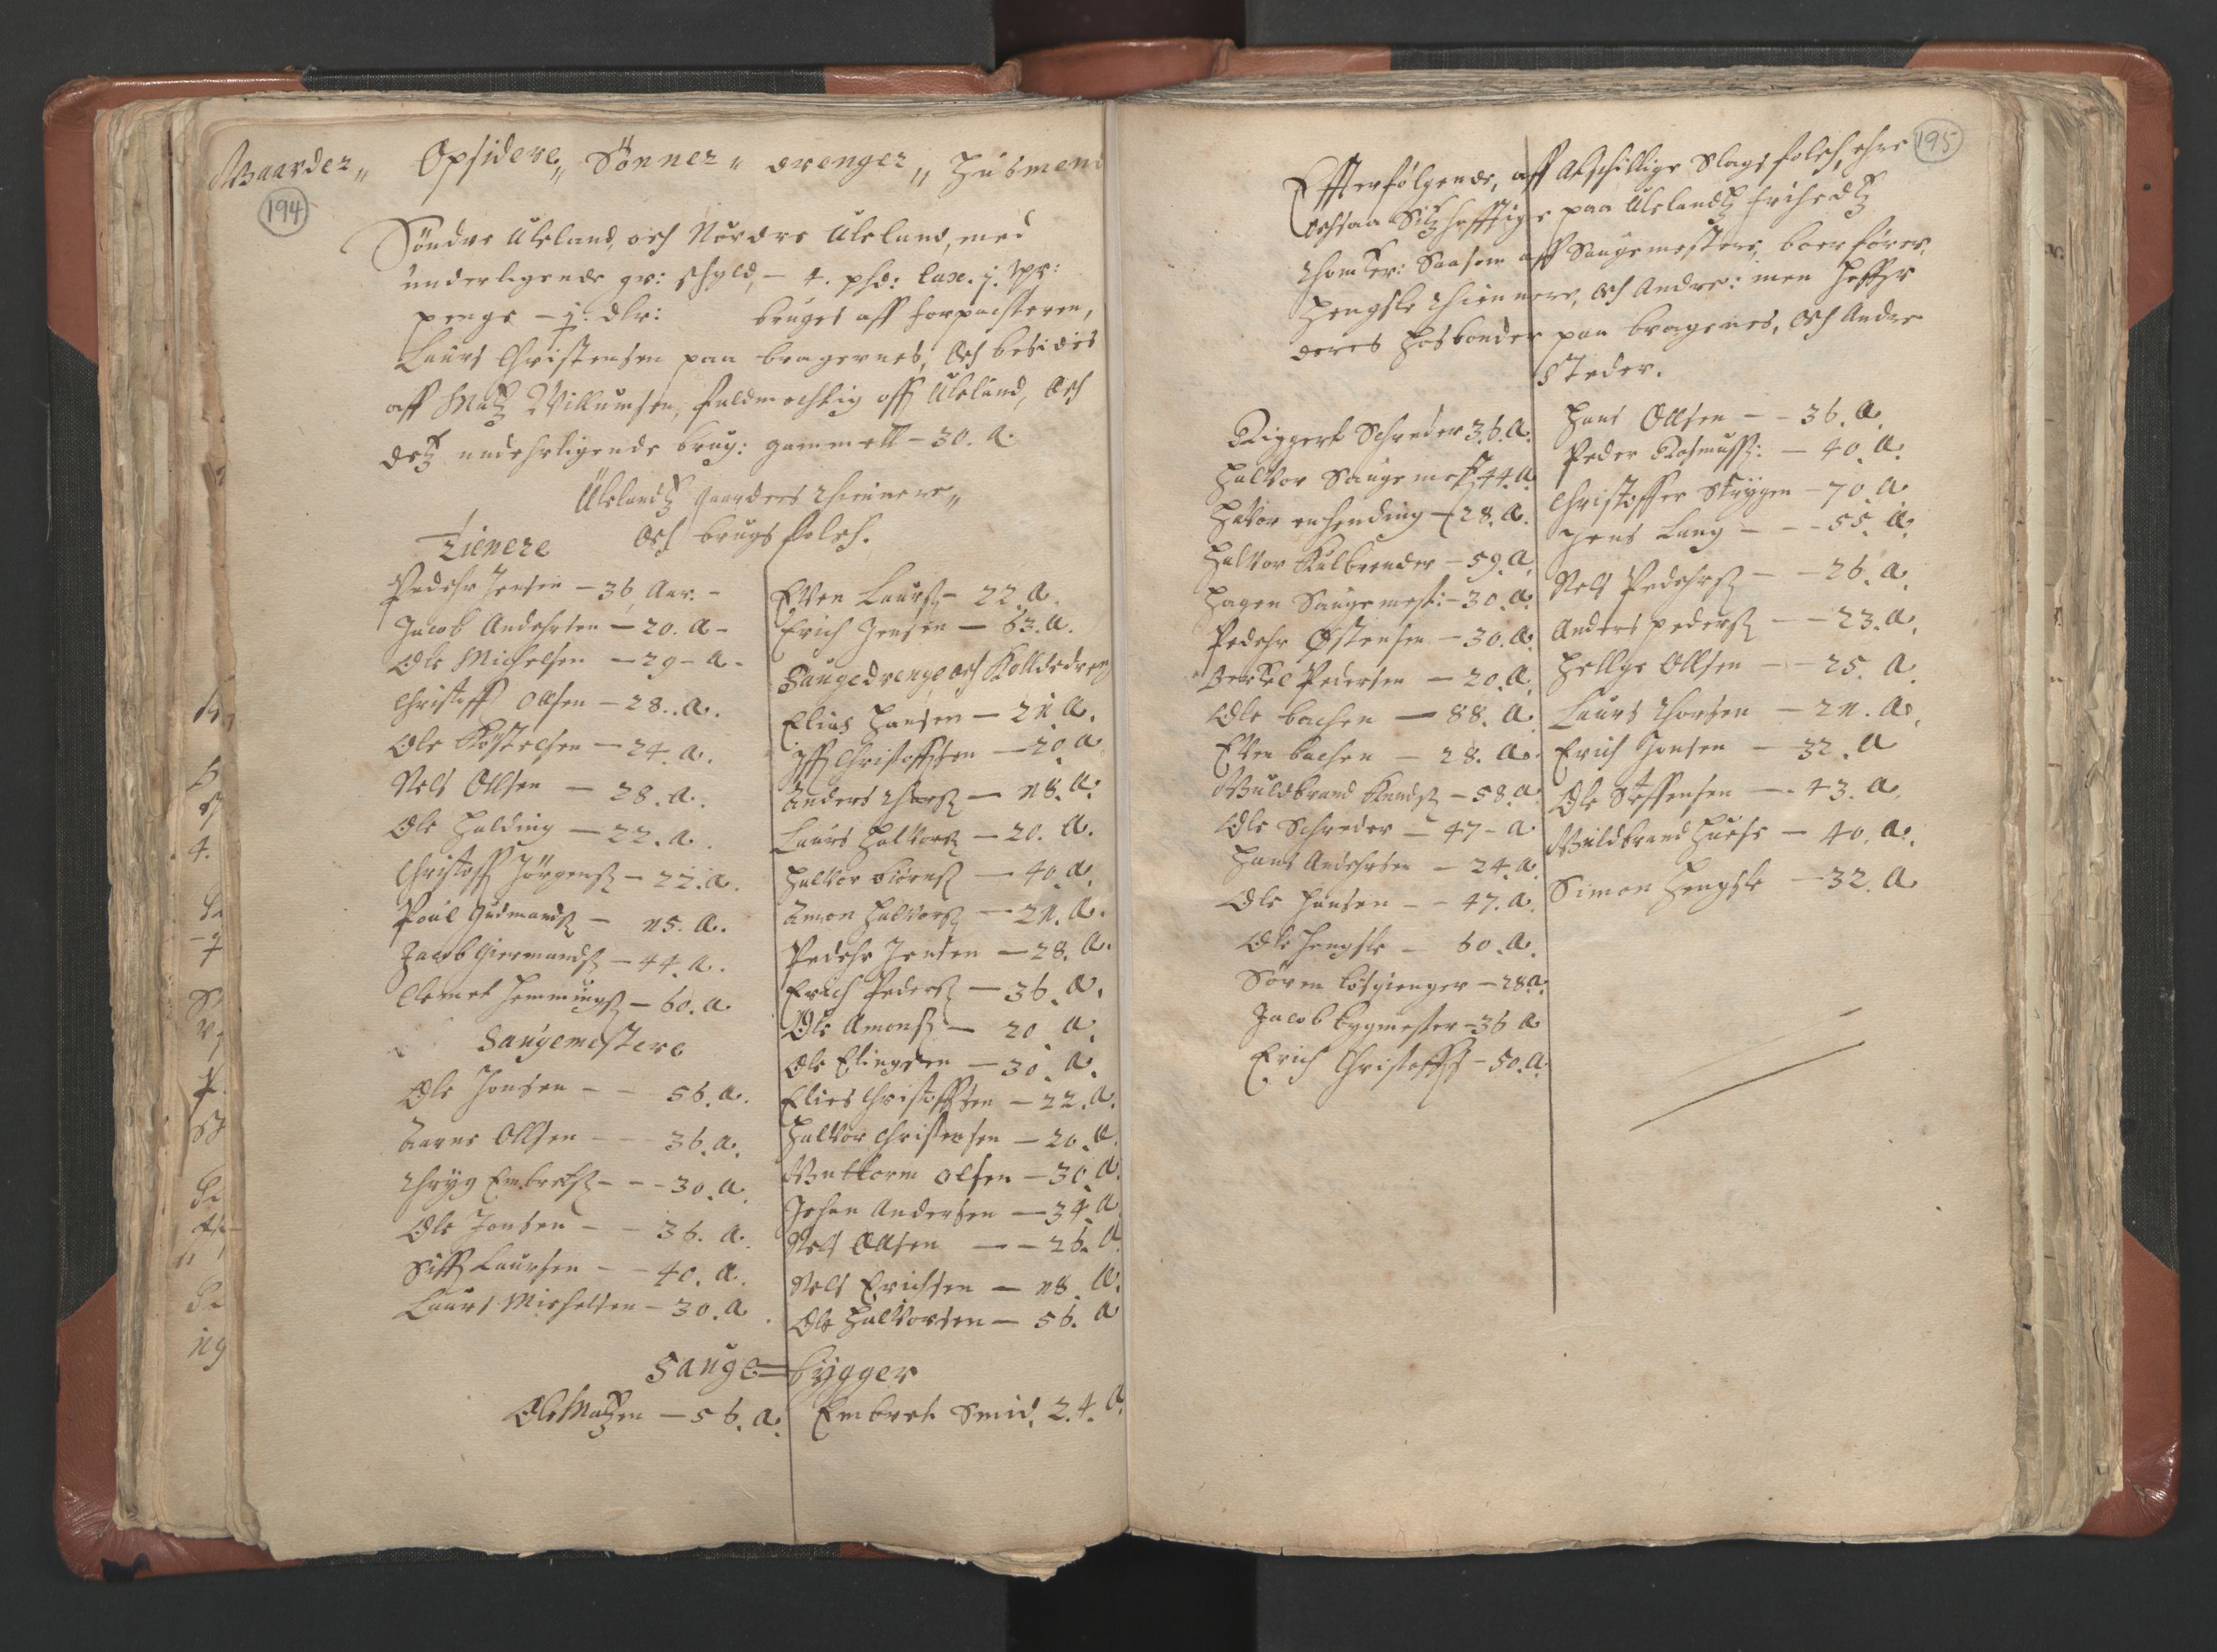 Gaarder„ Opsidere„ Sönner„ drenger„ Husmend
194
Söndre Uleland, och Nördre Uleland, med
underligende gr: schyld, – 4. phd: laxe. j. ψr:
penge – j. dlr: bruges aff forpachteren,
Laurs Christensen paa bragernes; Och besides
aff Matz Villumsen, fuldmechtig off Uleland, Och
detz underligende brug: gammell – 30. A.
Ulelandtz gaarders thienere„
Och brugs folch.
Tienere
Pedehr Jensen – 36 Aar. –
Jacob Andehrsen – 20. A –
Ole Michelsen – 29 – A –
Christoff Ollsen – 28. A.
Ole Kostelsen – 24. A.
Nels Ollsen – 28. A.
Ole Halding – 22. A.
Christoff Jörgens – 22. A.
Poul Gudmands – 15. A.
Jacob Giermands – 44. A.
Clemet Hemmings – 60. A.
Saugemestere
Ole Jonsen – – 56. A.
Aarne Ollsen – – 36. A.
Thryg Embrets – – – 30. A.
Ole Jonsen – – 36. A.
Siff Laursen – – 40. A.
Laurs Michelsen – 30. A.
Even Laurs – 22. A.
Erich Jensen – 63. A.
Saugedrenge och Kolldedreng
Elias Hansen – 21 A.
Iff Christoffsen – 20 A
Anders Thors – 18. A.
Laurs Haluors – 20. A.
Halvor Biörns – 40. A.
Amon Halvors – 21. A.
Pedehr Jensen – 28. A.
Erich Peders – 36. A.
Ole Amons – 20. A.
Ole Elingsen – 30. A.
Elies Christoffsen – 22. A.
Halvor Christensen – 20. A.
Guttorm Olsen – 30. A.
Johan Andersen – 34 A
Nels Ollsen – – 26. A
Nels Erichsen – 18. A.
Ole Halvorsen – 56. A
Sauge=bygger
Ole Matzen – 56. A. Embret Smid. 24. A.
195
Effterfölgende, aff Atschillige Slags folch, ehre
ochsaa Sitzhafftige paa Ulelandtz frihedtz
Saasom aff Saugemestere, boerförer,
Hengsle thiennere, Och Andre: men haffer
deres Hosbonder paa bragernes, Och Andre
Steder.
Riggert Schreder 36. A.
Halvor Saugemest 44. A.
Halvor enhending – 28. A.
Halvor Kulbrender – 59. A.
Hagen Saugemest: – 30. A.
Pedehr Östensen – 30. A.
Bertel Pedersen – 20. A.
Ole bachen – 88. A.
Even bachen – 28. A.
Guldbrand Knuds – 58. A
Ole Schreder – 47 – A
Hans Andehrsen – 24. A
Ole Hansen – – 47. A.
Ole Hengsle – 60. A.
Sören Lösgienger – 28 A.
Jacob bygmester – 36 A
Erich Christoffs – 50. A.
Hans Ollsen – – 36. A.
Peder Rasmuss: – 40. A.
Christoffer Strygen – 70. A.
Jens Lang – – – 55. A.
Nels Pedehrs – – 26. A.
Anders peders – – 23. A.
Hellge Ollsen – – 25. A.
Laurs Thorsen – 21. A.
Erich Jonsen – 32. A
Ole Steffensen – – 43. A.
Guldbrand Huels – 40. A.
Simon Hengsle – 32. A